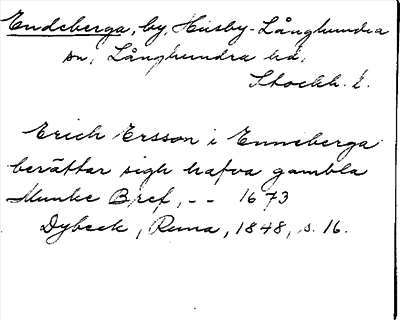 Endeberga, by, Husby-Långhundra
sn, Långhundra hd,
Stockh. l.
Erich Ersson i Enneberga
berättar sigh hafva gambla
Munke Bref, -- 1673
Dybeck, Runa, 1848, s. 16.